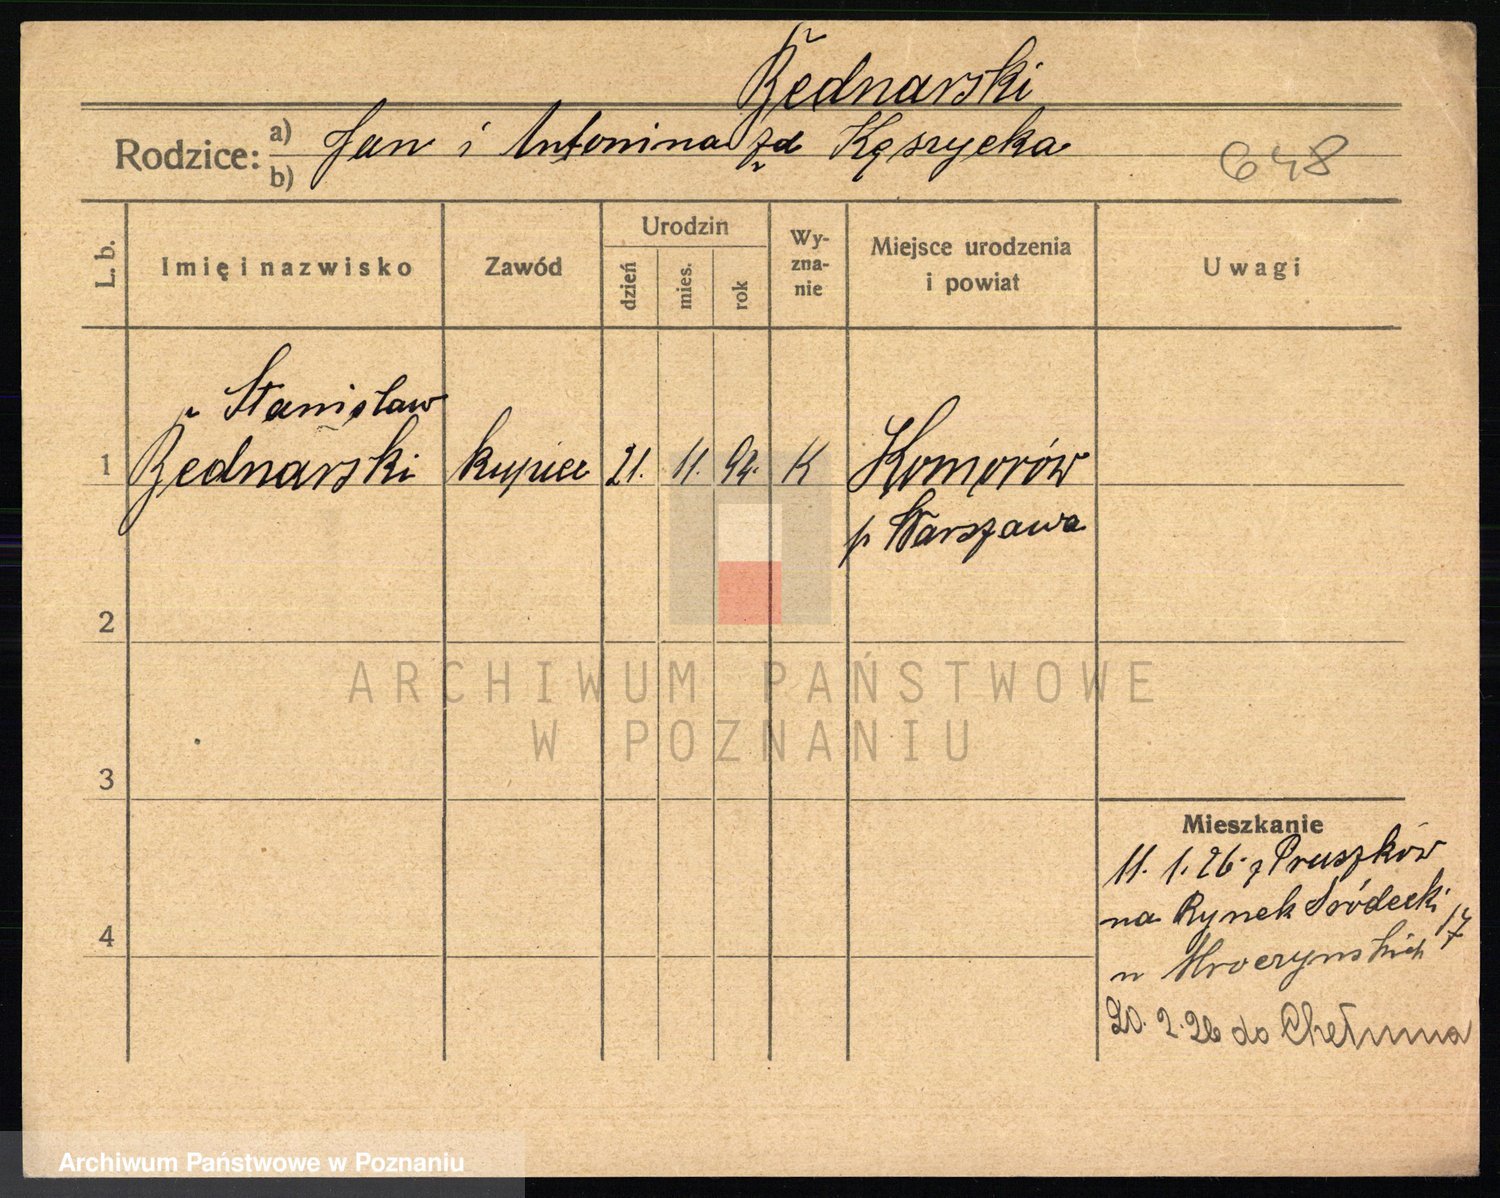 Bednarski
Rodzice: a) Jan i Antonina zd Kęszycka
b)
648
L. b.
Imię i nazwisko
Zawód
Urodzin
dzień
mies.
rok
Wy-
zna-
nie
Miejsce urodzenia
i powiat
Uwagi
Stanisław
1 Bednarski kupiec 21. 11. 94. K Komorów
p Warszawa
2
3
4
Mieszkanie
11. 1. 26. z Pruszków
na Rynek Śródecki 17
u Mroczyńskich
20. 2. 26 do Chełmna
ARCHIWUM PAŃSTWOWE
W POZNANIU
Archiwum Państwowe w Poznaniu